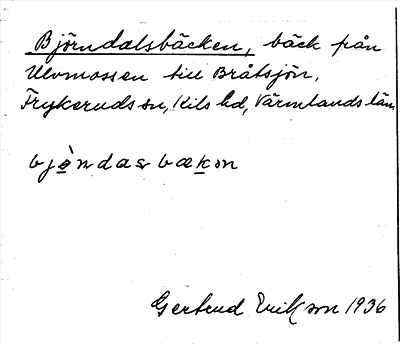 Björndalsbäcken, bäck från
Ulvmossen till Bråtsjön,
Frykeruds sn, Kils hd, Värmlands län
bjø̀ndasbækən
Gertrud Erikson 1936